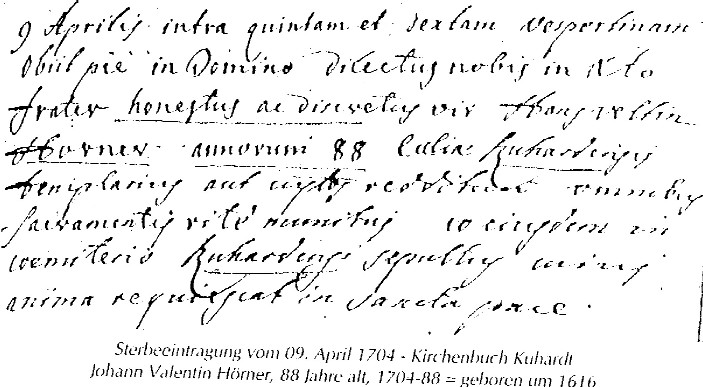 9 Aprilis intra quintam et sextam vespertinam
obiit pié in Domino dilectus nobis in Xto
frater honestus ac discretus vir Hans veltin
Hörner annorum 88 Kuhardensis
omnibus
sacramentis rité munitus in
coemiterio Kuhardensi sepultus cuius
anima requiescat in sancta pace.
Sterbeeintragung vom 09. April 1704 - Kirchenbuch Kuhardt
Johann Valentin Hörner, 88 Jahre alt, 1704-88 = geboren um 1616